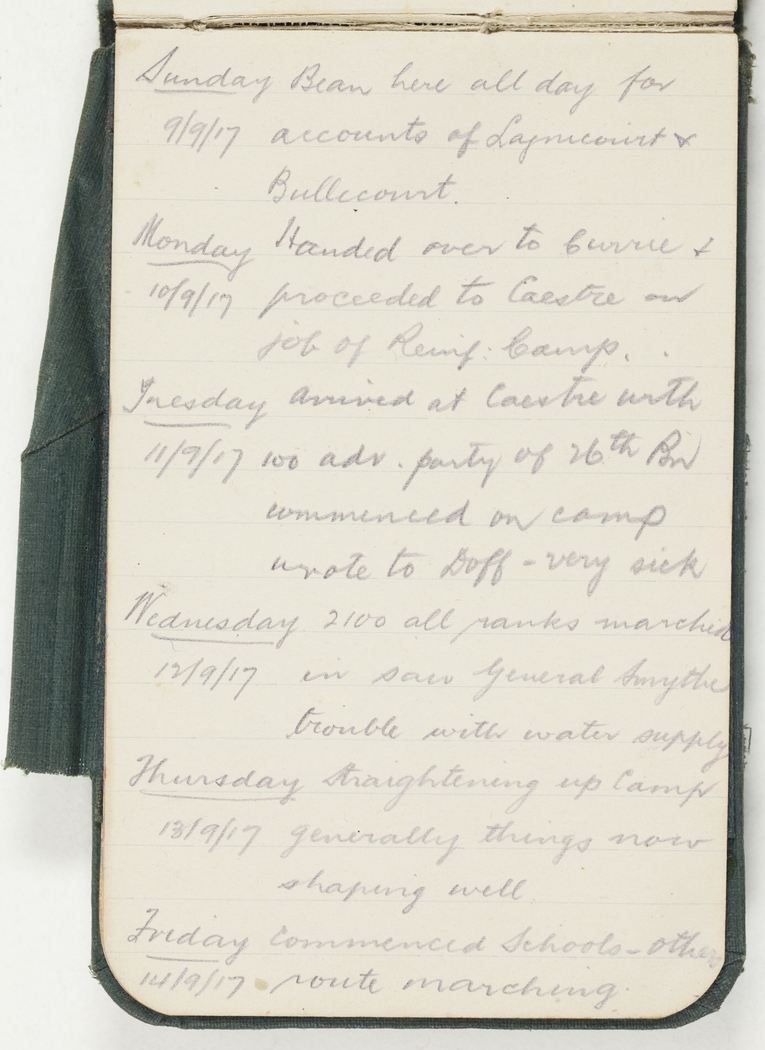 Sunday Bean here all day for
9/9/17 accounts of Lagnicourt &
Bullecourt.
Monday Handed over to Currie &
10/9/17 proceeded to Caestre on
job of Reinf. Camp.
Tuesday arrived at Caestre with
11/9/17 100 adv. party of 26th Bn
commenced on camp
wrote to Doff - very sick
Wednesday 2100 all ranks marched
12/9/17 in saw General Smythe
trouble with water supply
Thursday straightening up Camp
13/9/17 generally things now
shaping well
Friday Commenced Schools - other
14/9/17 route marching.